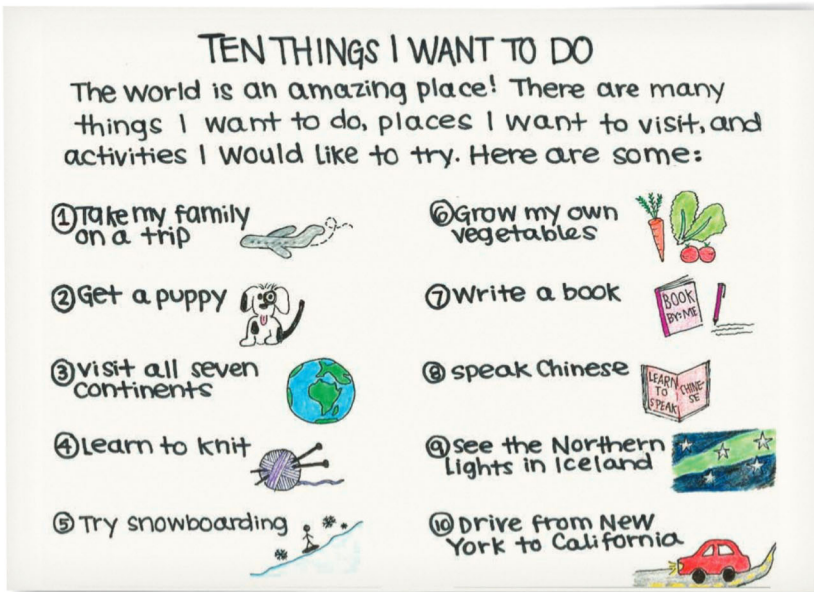 TEN THINGS I WANT TO DO
The world is an amazing place! There are many
things I want to do, places I want to visit, and
activities I would like to try. Here are some:
① Take my family
on a trip
② Get a puppy
③ visit all seven
continents
④ Learn to knit
⑤ Try snowboarding
⑥ Grow my own
vegetables
⑦ Write a book
BOOK
BY: ME
⑧ speak Chinese
LEARN
TO
SPEAK
CHINE-
SE
⑨ see the Northern
Lights in Iceland
⑩ Drive from New
York to California